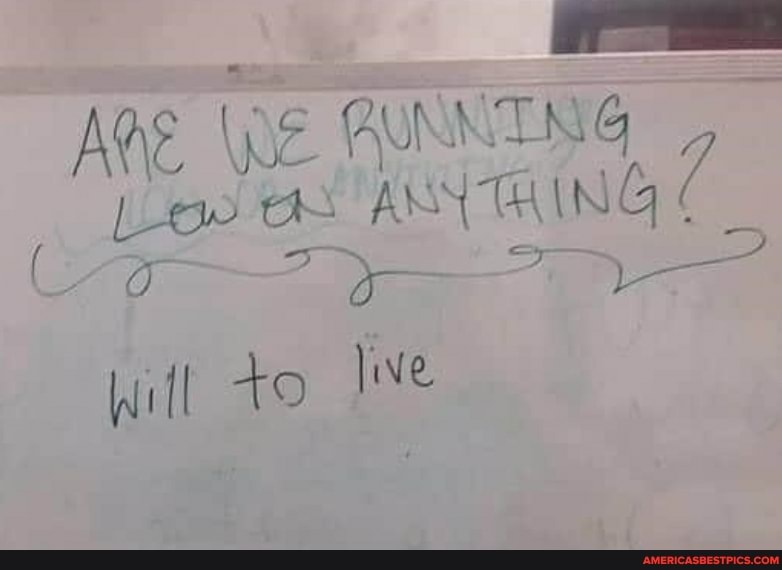 ARE WE RUNNING
LOW ON ANYTHING?
Will to live
AMERICASBESTPICS.COM